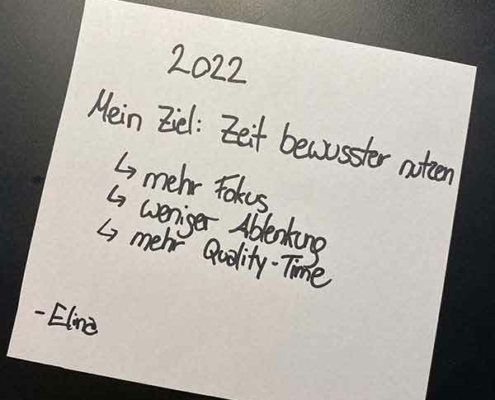 2022
Mein Ziel: Zeit bewusster nutzen
↳ mehr Fokus
↳ weniger Ablenkung
↳ mehr Quality-Time
- Elina